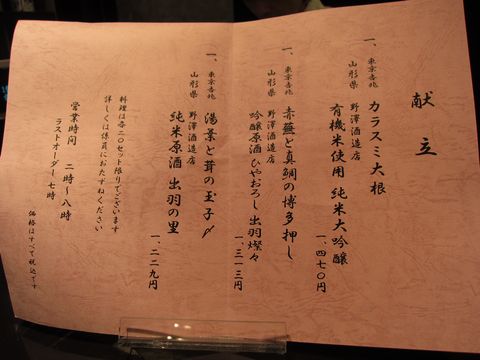 献立
一、東京吉兆 カラスミ大根
山形県 野澤酒造店 有機米使用 純米大吟醸
一、四七〇円
一、東京吉兆 赤蕪と真鯛の博多押し
山形県 野澤酒造店 吟醸原酒 ひやおろし 出羽燦々
一、三一三円
一、東京吉兆 湯葉と茸の玉子〆
山形県 野澤酒造店 純米原酒 出羽の里
一、二二九円
料理は各二〇セット限りでございます
詳しくは係員におたずねください
営業時間 二時〜八時
ラストオーダー 七時
価格はすべて税込です